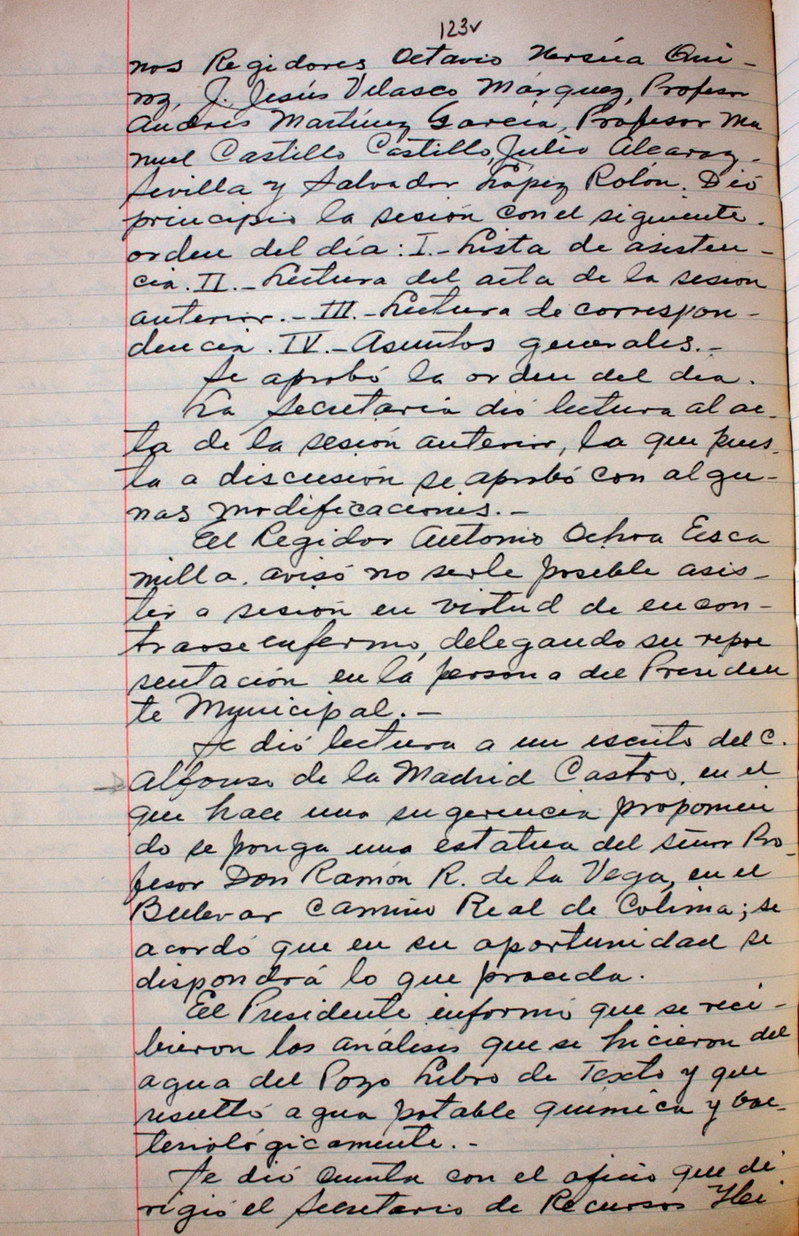 123v
nos Regidores Octavio Ursúa Qui-
roz, J. Jesús Velasco Márquez, Profesor
Andrés Martínez García, Profesor Ma
nuel Castillo Castillo, Julio Alcaraz.
Sevilla y Salvador López Rolón. Dió
principio la sesión con el siguiente.
orden del día: I.- Lista de asisten-
cia. II.- Lectura del acta de la sesión
anterior.- III.- Lectura de correspon-
dencia. IV.- Asuntos generales.-
Se aprobó la orden del dia.
La Secretaría dió lectura al ac-
ta de la sesión anterior, la que pues-
ta a discusión se aprobó con algu-
nas modificaciones.-
El Regidor Antonio Ochoa Esca
milla. avisó no serle posible asis-
tir a sesión en virtud de encon-
trarse enfermo, delegando su repre
sentación en la persona del Presiden
te Municipal.-
Se dió lectura a un escrito del C.
Alfonso de la Madrid Castro, en el
que hace una sugerencia proponien
do se ponga una estatua del señor Pro-
fesor Don Ramón R. de la Vega, en el
Bulevar Camino Real de Colima; se
acordó que en su oportunidad se
dispondrá lo que proceda.
El Presidente informó que se reci-
bieron los análisis que se hicieron del
agua del Pozo Libro de Texto y que
resultó agua potable química y bac-
teriológicamente.-
Se dió cuenta con el oficio que di
rigió el Secretario de Recursos